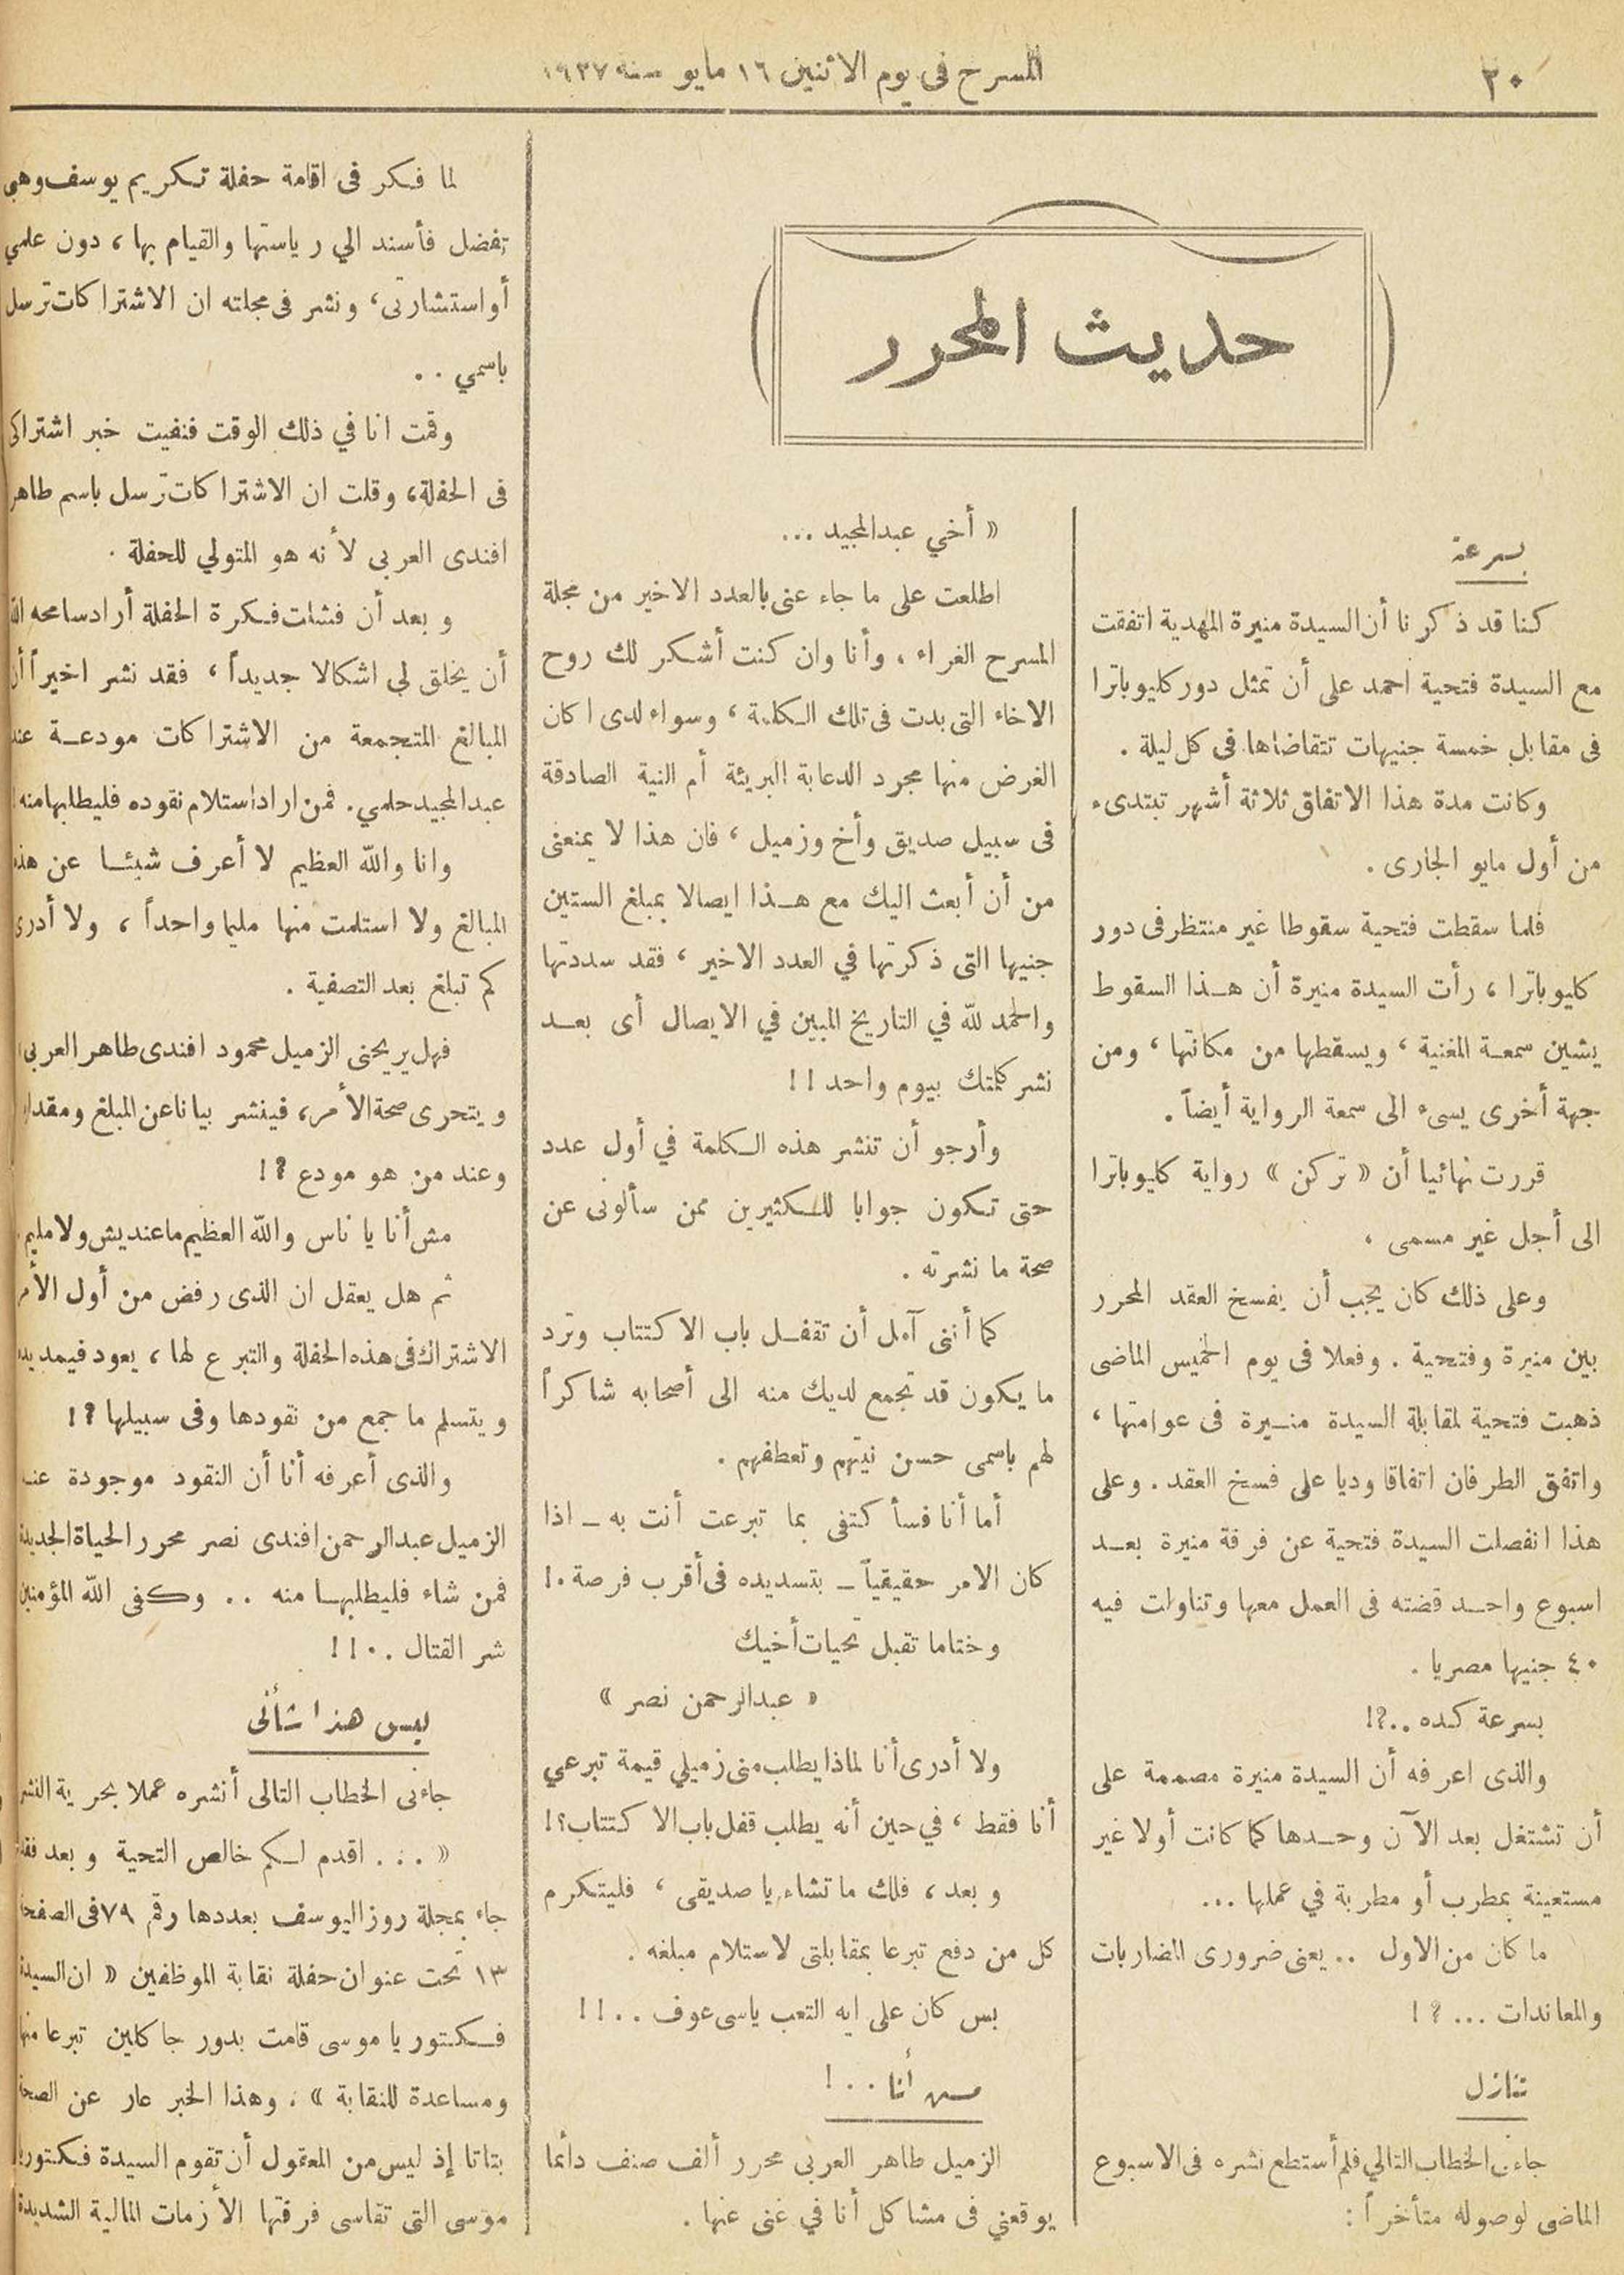 ٢٠
المسرح فى يوم الاثنين ١٦ مايو سنة ١٩٢٧
حديث المحرر
بسرعة
كنا قد ذكرنا أن السيدة منيرة المهدية اتفقت
مع السيدة فتحية احمد على أن تمثل دور كليوباترا
فى مقابل خمسة جنيهات تتقاضاها فى كل ليلة .
وكانت مدة هذا الاتفاق ثلاثة أشهر تبتدىء
من أول مايو الجارى .
فلما سقطت فتحية سقوطا غير منتظر فى دور
كليوباترا ، رأت السيدة منيرة أن هــذا السقوط
يشين سمعــة المغنية ، ويسقطها من مكانتها ، ومن
جهة أخرى يسىء الى سمعة الرواية أيضاً .
قررت نهائيا أن « تركن » رواية كليوباترا
الى أجل غير مسمى ،
وعلى ذلك كان يجب أن يفسخ العقد المحرر
بين منيرة وفتحية . وفعلا فى يوم الخميس الماضى
ذهبت فتحية لمقابلة السيدة منــيرة فى عوامتها ،
واتفق الطرفان اتفاقا وديا على فسخ العقد . وعلى
هذا انفصلت السيدة فتحية عن فرقة منيرة بعــد
اسبوع واحــد قضته فى العمل معها وتناولت فيه
٤٠ جنيها مصريا .
بسرعة كده ..؟!
والذى اعرفه أن السيدة منيرة مصممة على
أن تشتغل بعد الآن وحــدها كما كانت أولا غير
مستعينة بمطرب أو مطربة في عملها ...
ما كان من الاول .. يعنى ضرورى المضاربات
والمعاندات ... ؟ !
تنازل
جاءنى الخطاب التالي فلم أستطع نشره فى الاسبوع
الماضى لوصوله متأخراً :
« أخي عبدالمجيد ...
اطلعت على ما جاء عنى بالعدد الاخير من مجلة
المسرح الغراء ، وأنا وان كنت أشكر لك روح
الاخاء التى بدت فى تلك الـكلمة ، وسواء لدى اكان
الغرض منها مجرد الدعابة البريئة أم النية الصادقة
فى سبيل صديق وأخ وزميل ، فان هذا لا يمنعنى
من أن أبعث اليك مع هــذا ايصالا بمبلغ الستين
جنيها التى ذكرتها في العدد الاخير ، فقد سددتها
والحمد لله في التاريخ المبين في الايصال أى بعــد
نشر كلمتك بيوم واحد ! !
وأرجو أن تنشر هذه الـكلمة في أول عدد
حتى تـكون جوابا للـكثيرين ممن سألونى عن
صحة ما نشرته .
كما أننى آمل أن تقفــل باب الاكتتاب وترد
ما يكون قد تجمع لديك منه الى أصحابه شاكراً
لهم باسمى حسن نيتهم وتعطفهم .
أما أنا فسأكتفى بما تبرعت أنت به ــ اذا
كان الامر حقيقياً ــ بتسديده فى أقرب فرصة .!
وختاما تقبل تحيات أخيك
« عبدالرحمن نصر »
ولا أدرى أنا لماذا يطلب منى زميلي قيمة تبرعي
أنا فقط ، في حين أنه يطلب قفل باب الاكتتاب؟!
وبعد ، فلك ما تشاء يا صديقى ، فليتكرم
كل من دفع تبرعا بمقابلتى لاستلام مبلغه .
بس كان على ايه التعب ياسى عوف . . ! !
مسه أنا . . !
الزميل طاهر العربى محرر ألف صنف دائما
يوقعني فى مشاكل أنا في غنى عنها .
لما فـكر فى اقامة حفلة تـكريم يوسف وهبي
تفضل فأسند الي رياستها والقيام بها ، دون علمي
أو استشارتى ، ونشر فى مجلته ان الاشتراكات ترسل
باسمي . .
وقمت انا في ذلك الوقت فنفيت خبر اشتراكى
فى الحفلة ، وقلت ان الاشتراكات ترسل باسم طاهر
افندى العربى لأنه هو المتولي للحفلة .
وبعد أن فشلت فـكرة الحفلة أراد سامحه الله
أن يخلق لي اشكالا جديداً ، فقد نشر اخيراً أن
المبالغ المتجمعة من الاشتراكات مودعــة عند
عبدالمجيد حلمي . فمن اراد استلام نقوده فليطلبها منه !
وانا والله العظيم لا أعرف شيئــا عن هذه
المبالغ ولا استلمت منها مليما واحداً ، ولا أدرى
كم تبلغ بعد التصفية .
فهل يريحنى الزميل محمود افندى طاهر العربى ،
ويتحرى صحة الأمر ، فينشر بيانا عن المبلغ ومقداره
وعند من هو مودع ؟ !
مش أنا يا ناس والله العظيم ما عنديش ولا مليم .
ثم هل يعقل ان الذى رفض من أول الأمر
الاشتراك فى هذه الحفلة والتبرع لها ، يعود فيمد يده
ويتسلم ما جمع من نقودها وفى سبيلها ؟ !
والذى أعرفه أنا أن النقود موجودة عند
الزميل عبدالرحمن افندى نصر محرر الحياة الجديدة
فمن شاء فليطلبهــا منه .. وكفى الله المؤمنين
شر القتال . . ! !
ليس هذا شأنى
جاءنى الخطاب التالى أنشره عملا بحرية النشر
« . . . اقدم لـكم خالص التحية وبعد فقد
جاء بمجلة روز اليوسف بعددها رقم ٧٩ فى الصفحة
١٣ تحت عنوان حفلة نقابة الموظفين « ان السيدة
فــكتوريا موسى قامت بدور جاكلين تبرعا منها
ومساعدة للنقابة » . وهذا الخبر عار عن الصحة
بتاتا إذ ليس من المعقول أن تقوم السيدة فـكتوريا
موسى التى تقاسى فرقتها الأزمات المالية الشديدة